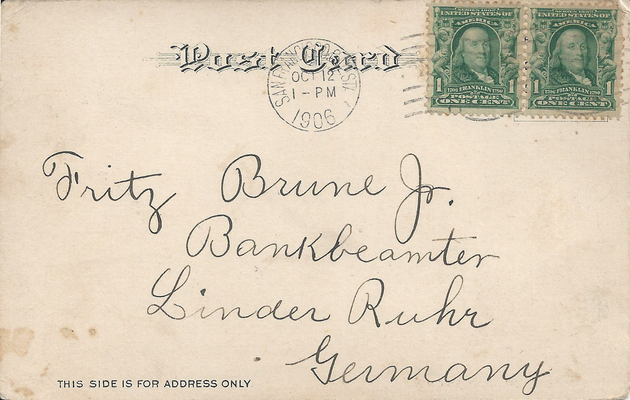 Post Card
SAN FRANCISCO
OCT 12
1 - PM
1906
SERIES 1902
UNITED STATES OF
AMERICA
1706 FRANKLIN 1790
POSTAGE
1 ONE CENT 1
SERIES 1902
UNITED STATES OF
AMERICA
1706 FRANKLIN 1790
POSTAGE
1 ONE CENT 1
Fritz Brune Jr.
Bankbeamter
Linder Ruhr
Germany
THIS SIDE IS FOR ADDRESS ONLY